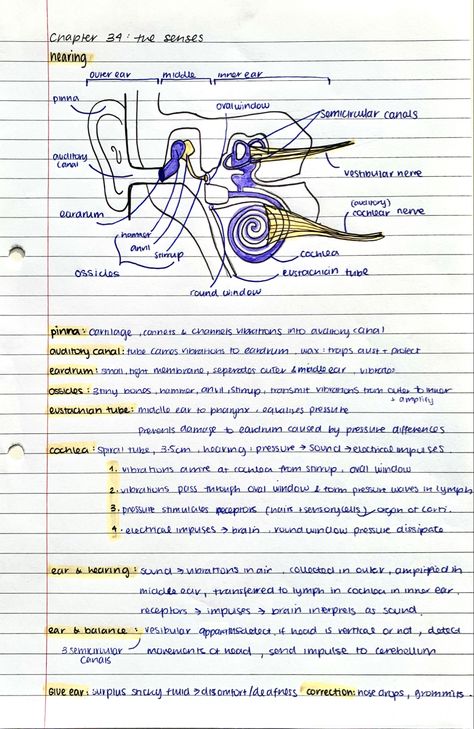 Chapter 34: the senses
hearing
outer ear
middle
inner ear
pinna
oval window
semicircular canals
auditory canal
vestibular nerve
(auditory)
cochlear nerve
eardrum
hammer
anvil
stirrup
ossicles
cochlea
eustachian tube
round window
pinna: cartilage, & channels vibrations into auditory canal
auditory canal: tube carries vibrations to eardrum, wax: traps dust + protect
eardrum: small, tight membrane, seperates outer & middle ear, vibrates
ossicles: 3 tiny bones, hammer, anvil, stirrup, transmit vibrations from outer to inner
+ amplify
eustachian tube: middle ear to pharynx, equalises pressure
prevents damage to eardrum caused by pressure differences
cochlea: spiral tube, 3.5cm, hearing: pressure → sound → electrical impulses.
1. vibrations arrive at cochlea from stirrup, oval window
2. vibrations pass through oval window & form pressure waves in lymph
3. pressure stimulates receptors (hairs + sensory cells) organ of corti.
4. electrical impulses → brain, round window pressure dissipate
ear & hearing: sound → vibrations in air, collected in outer, amplified in
middle ear, transferred to lymph in cochlea in inner ear,
receptors → impulses → brain interprets as sound.
ear & balance: vesibular apparatus detect if head is vertical or not, detect
3 semicircular canals
movements of head, send impulse to cerebellum
Glue ear: surplus sticky fluid → discomfort/deafness correction: nose drops, grommits.